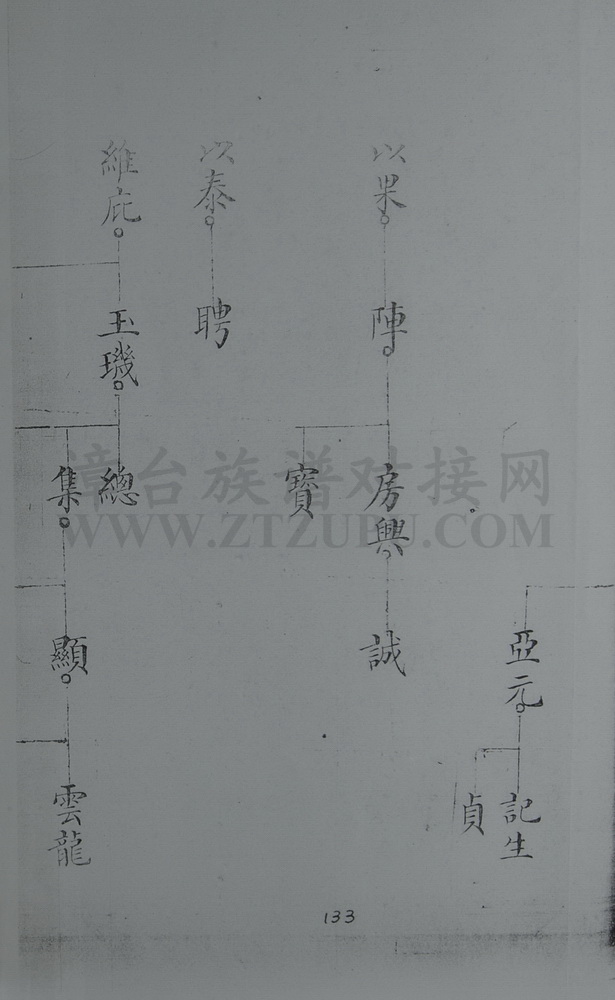 以果
以泰
維庇
陣
聘
玉璣
房興
寶
總
集
亞元
誠
顯
記生
貞
雲龍
漳台族谱对接网
WWW.ZTZUPU.COM
133